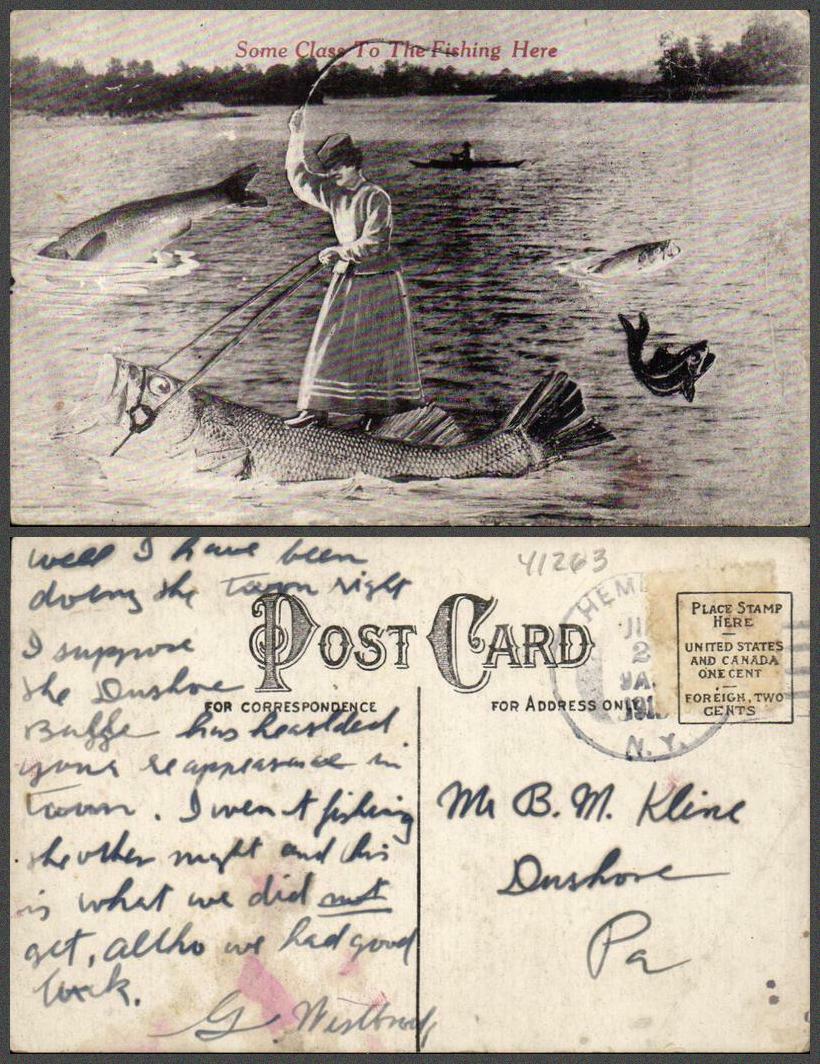 Some Class To The Fishing Here
well I have been
doing the town right
I suppose
the Dushore
has heralded
your reappearance in
town. I went fishing
the other night and this
is what we did not
get, altho we had good
luck.
G. Westbrook
41263
POST CARD
FOR CORRESPONDENCE
FOR ADDRESS ONLY
PLACE STAMP
HERE
UNITED STATES
AND CANADA
ONE CENT
FOREIGN, TWO
CENTS
N.Y.
Mr B. M. Kline
Dushore
Pa